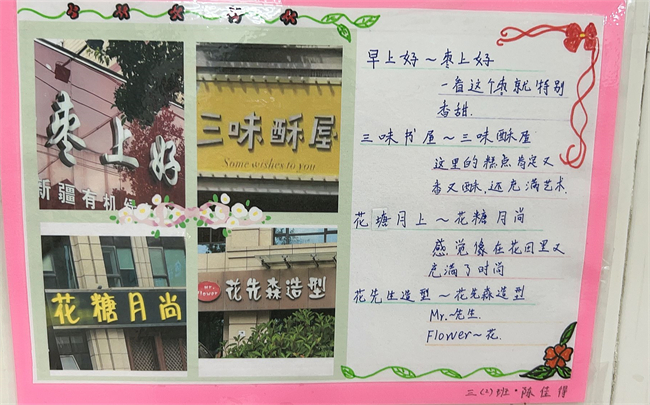 枣上好
新疆有机
三味酥屋
Some wishes to you
花糖月尚
Mr.
flower
花先森造型
早上好~枣上好
一看这个枣就特别
香甜.
三味书屋~三味酥屋
这里的糕点肯定又
香又酥,还充满艺术
花塘月上~花糖月尚
感觉像在花园里又
充满了时尚
花先生造型~花先森造型
Mr.~先生.
Flower~花.
三(1)班·陈佳